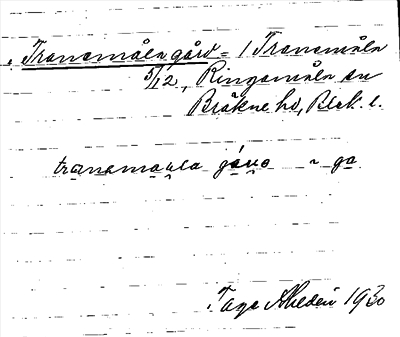 Transmåla gård = 1 Transmåla
5/12, Ringamåla sn
Bräkne hd, Blek. l.
transmaala gård ~ ga
Tage Ahldén 1930